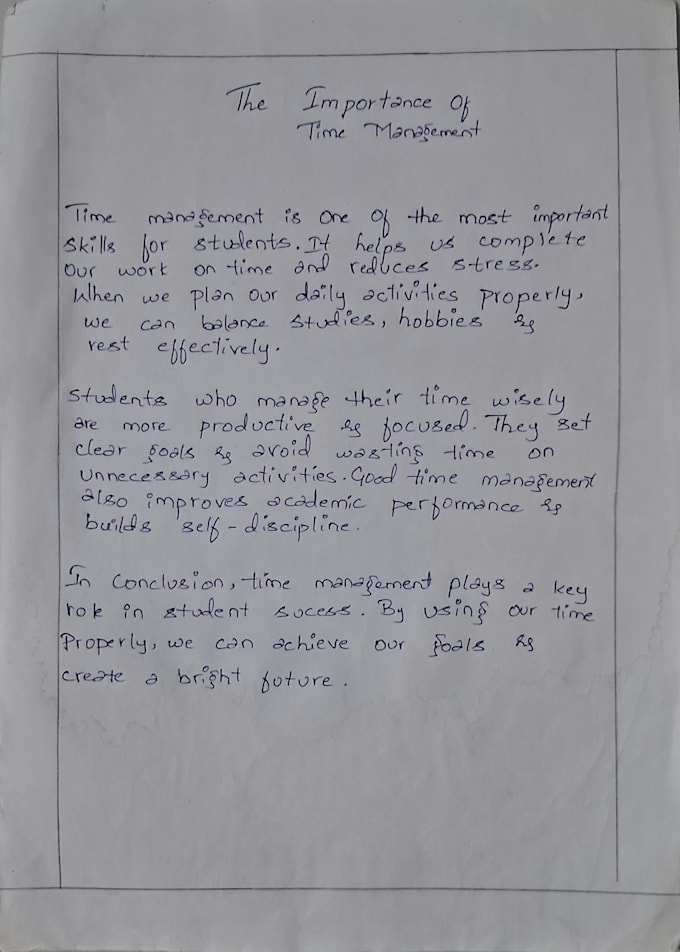 The Importance Of
Time Management
Time management is one of the most important
skills for students. It helps us complete
our work on time and reduces stress.
When we plan our daily activities properly,
we can balance studies, hobbies &
rest effectively.
Students who manage their time wisely
are more productive & focused. They set
clear goals & avoid wasting time on
unnecessary activities. Good time management
also improves academic performance &
builds self-discipline.
In conclusion, time management plays a key
role in student sucess. By using our time
Properly, we can achieve our goals &
create a bright future.